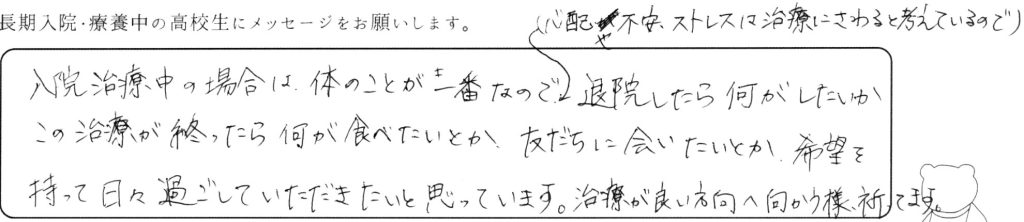 長期入院・療養中の高校生にメッセージをお願いします。
(心配や不安、ストレスは治療にさわると考えているので)
入院治療中の場合は、体のことが一番なので、退院したら何がしたいか
この治療が終ったら何が食べたいとか、友だちに会いたいとか、希望を
持って日々過ごしていただきたいと思っています。治療が良い方向へ向かう様、祈ってます。